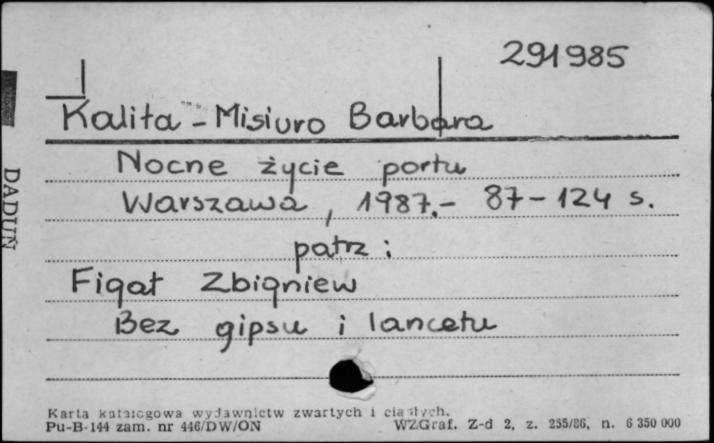 291985
Kalita - Misiuro Barbara
Nocne życie portu
Warszawa, 1987.- 87-124 s.
patrz:
Figat Zbigniew
Bez gipsu i lancetu
DADUŃ
Karta katalogowa wydawnictw zwartych i ciągłych.
Pu-B-144 zam. nr 446/DW/ON
WZGraf. Z-d 2, z. 255/86, n. 6 350 000